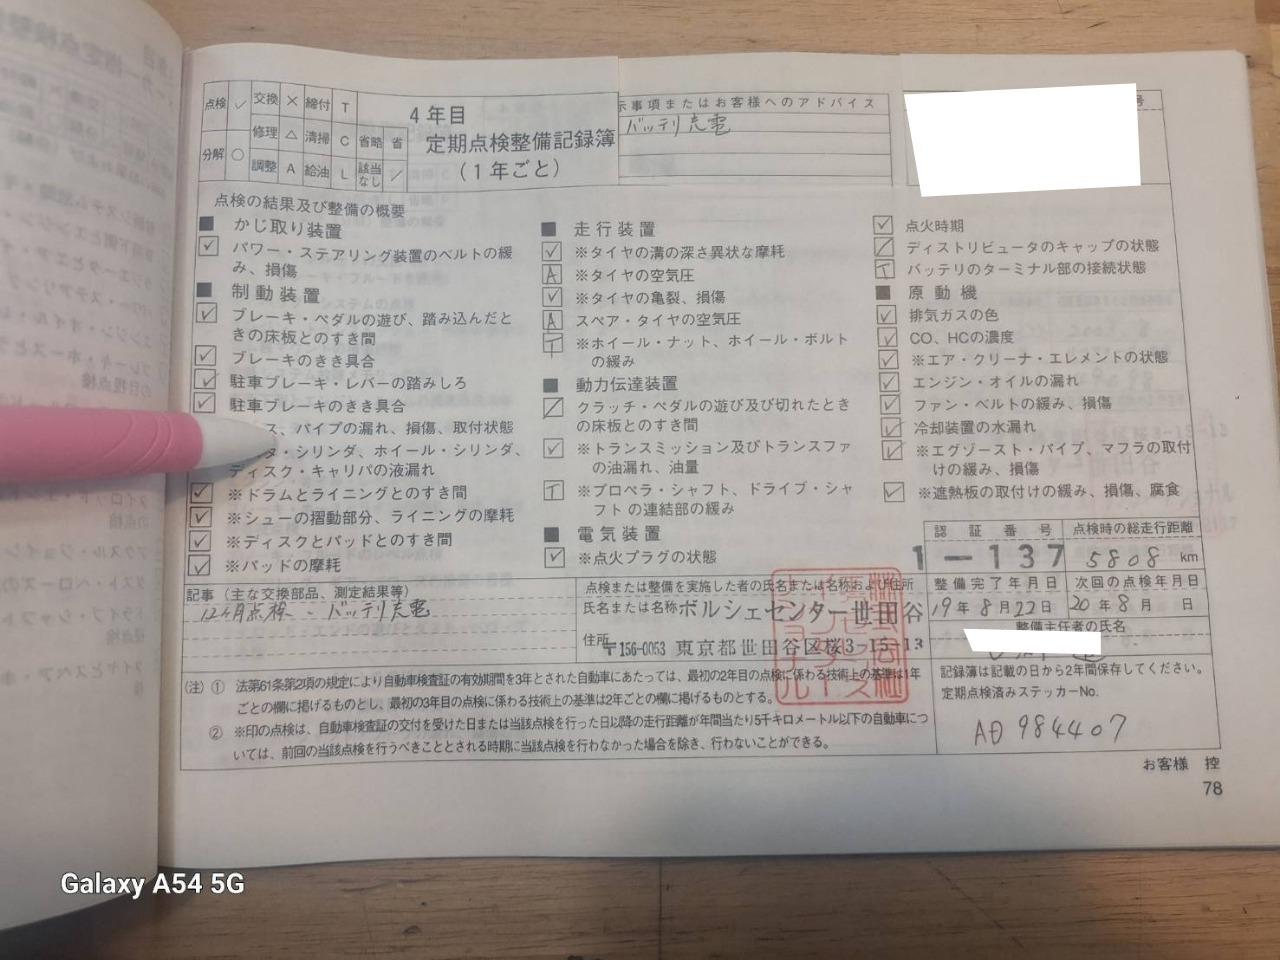 点検 ✓ 交換 × 締付 T
分解 ○ 修理 △ 清掃 C 省略 省
調整 A 給油 L 該当なし ／
4年目
定期点検整備記録簿
(1年ごと)
示事項またはお客様へのアドバイス
バッテリ充電
号
点検の結果及び整備の概要
■ かじ取り装置
✓ パワー・ステアリング装置のベルトの緩
み、損傷
■ 制動装置
✓ ブレーキ・ペダルの遊び、踏み込んだと
きの床板とのすき間
✓ ブレーキのきき具合
✓ 駐車ブレーキ・レバーの踏みしろ
✓ 駐車ブレーキのきき具合
ス、パイプの漏れ、損傷、取付状態
タ・シリンダ、ホイール・シリンダ、
ディスク・キャリパの液漏れ
✓ ※ドラムとライニングとのすき間
✓ ※シューの摺動部分、ライニングの摩耗
✓ ※ディスクとパッドとのすき間
✓ ※パッドの摩耗
■ 走行装置
✓ ※タイヤの溝の深さ異状な摩耗
A ※タイヤの空気圧
✓ ※タイヤの亀裂、損傷
A スペア・タイヤの空気圧
T ※ホイール・ナット、ホイール・ボルト
の緩み
■ 動力伝達装置
／ クラッチ・ペダルの遊び及び切れたとき
の床板とのすき間
✓ ※トランスミッション及びトランスファ
の油漏れ、油量
T ※プロペラ・シャフト、ドライブ・シャ
フトの連結部の緩み
■ 電気装置
✓ ※点火プラグの状態
✓ 点火時期
／ ディストリビュータのキャップの状態
T バッテリのターミナル部の接続状態
■ 原動機
✓ 排気ガスの色
✓ CO、HCの濃度
✓ ※エア・クリーナ・エレメントの状態
✓ エンジン・オイルの漏れ
✓ ファン・ベルトの緩み、損傷
✓ 冷却装置の水漏れ
✓ ※エグゾースト・パイプ、マフラの取付
けの緩み、損傷
✓ ※遮熱板の取付けの緩み、損傷、腐食
認証番号 点検時の総走行距離
1-137 5808 km
記事(主な交換部品、測定結果等)
12ヶ月点検・バッテリ充電
点検または整備を実施した者の氏名または名称および住所
氏名または名称 ポルシェセンター世田谷
住所 〒156-0053 東京都世田谷区桜3-15-13
整備完了年月日 次回の点検年月日
19年8月22日 20年8月 日
整備主任者の氏名
(注) ① 法第61条第2項の規定により自動車検査証の有効期間を3年とされた自動車にあたっては、最初の2年目の点検に係わる技術上の基準は1年
ごとの欄に掲げるものとし、最初の3年目の点検に係わる技術上の基準は2年ごとの欄に掲げるものとする。
② ※印の点検は、自動車検査証の交付を受けた日または当該点検を行った日以降の走行距離が年間当たり5千キロメートル以下の自動車につ
いては、前回の当該点検を行うべきこととされる時期に当該点検を行わなかった場合を除き、行わないことができる。
記録簿は記載の日から2年間保存してください。
定期点検済みステッカーNo.
AD 984407
お客様 控
78
Galaxy A54 5G